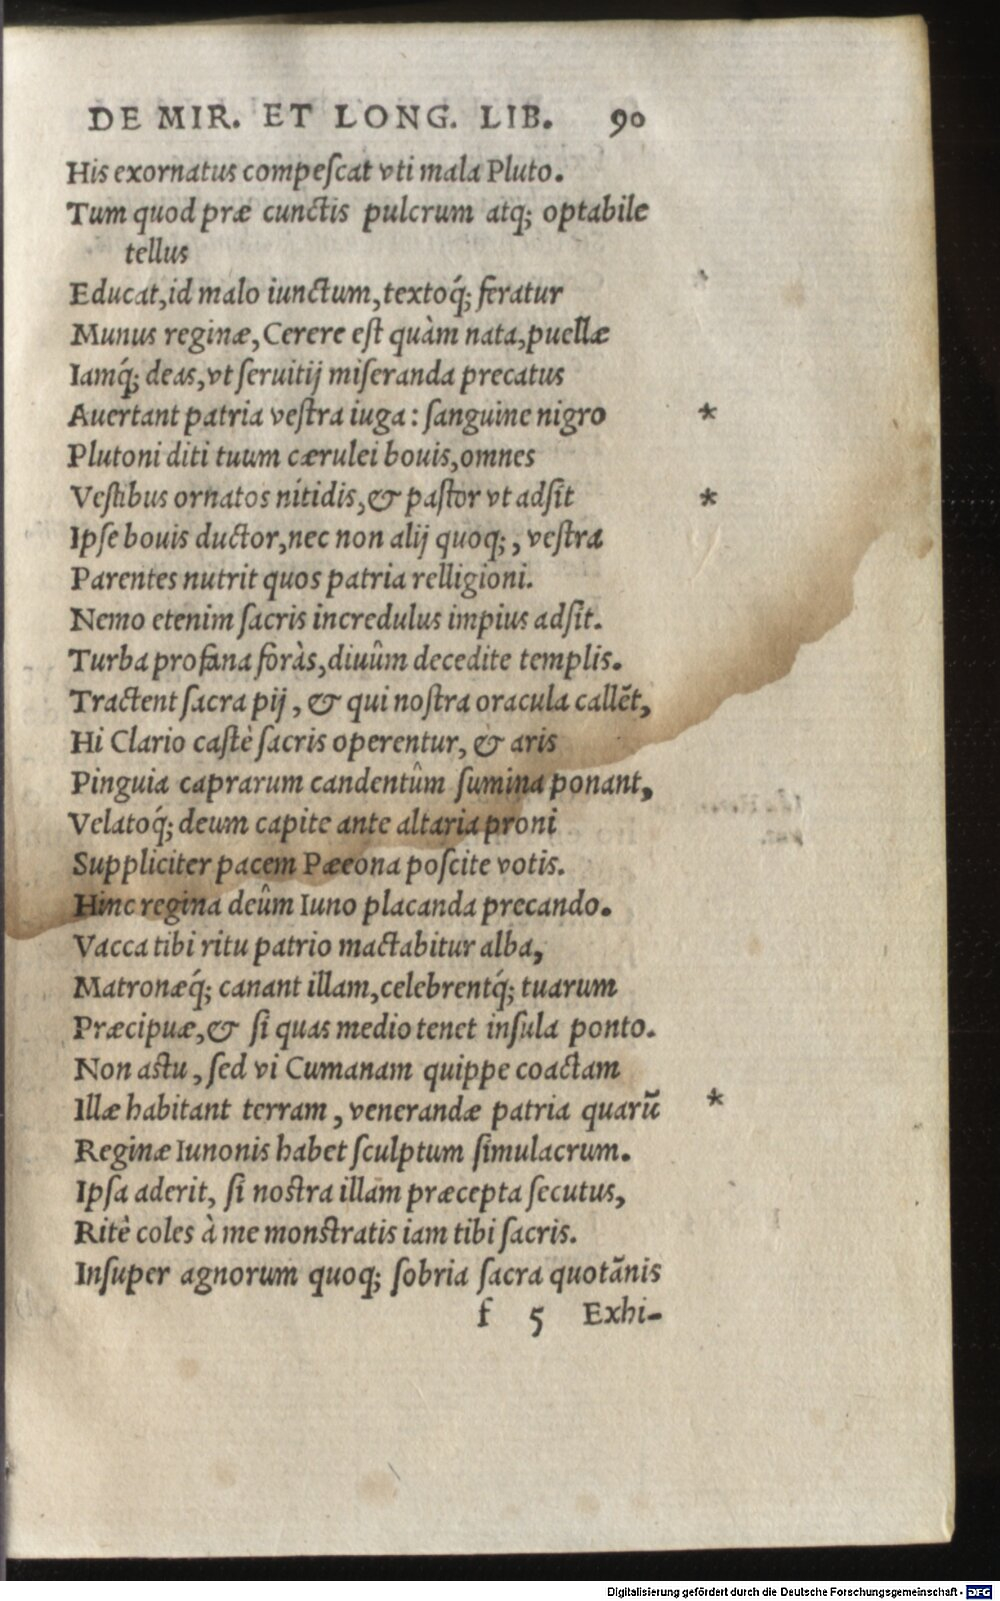 DE MIR. ET LONG. LIB. 90
His exornatus compeſcat vti mala Pluto.
Tum quod præ cunctis pulcrum atq; optabile
tellus
Educat, id malo iunctum, textoq́; feratur
Munus reginæ, Cerere eſt quàm nata, puellæ
Iamq́; deas, vt ſeruitij miſeranda precatus
Auertant patria veſtra iuga: ſanguine nigro *
Plutoni diti tuum cærulei bouis, omnes
Veſtibus ornatos nitidis, & paſtor vt adſit *
Ipſe bouis ductor, nec non alij quoq;, veſtra
Parentes nutrit quos patria relligioni.
Nemo etenim ſacris incredulus impius adſit.
Turba profana foràs, diuûm decedite templis.
Tractent ſacra pij, & qui noſtra oracula callēt,
Hi Clario caſtè ſacris operentur, & aris
Pinguia caprarum candentûm ſumina ponant,
Velatoq́; deum capite ante altaria proni
Suppliciter pacem Pæeona poſcite votis.
Hinc regina deûm Iuno placanda precando.
Vacca tibi ritu patrio mactabitur alba,
Matronæq́; canant illam, celebrentq́; tuarum
Præcipuæ, & ſi quas medio tenet inſula ponto.
Non aſtu, ſed vi Cumanam quippe coactam
Illæ habitant terram, venerandæ patria quarū *
Reginæ Iunonis habet ſculptum ſimulacrum.
Ipſa aderit, ſi noſtra illam præcepta ſecutus,
Ritè coles à me monſtratis iam tibi ſacris.
Inſuper agnorum quoq; ſobria ſacra quotānis
f 5 Exhi-
Digitalisierung gefördert durch die Deutsche Forschungsgemeinschaft - DFG